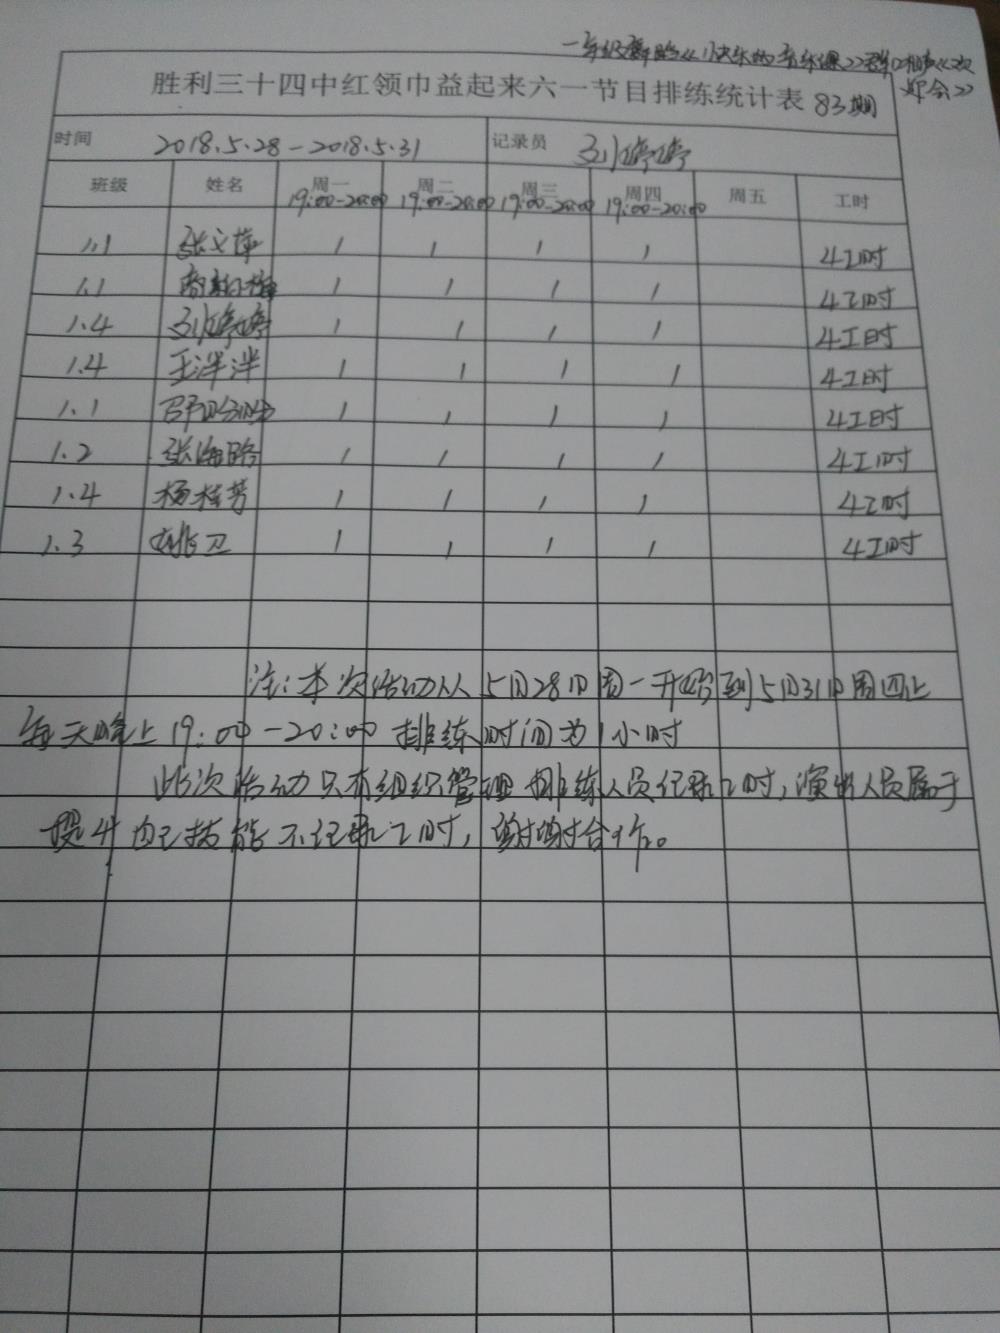 一年级舞蹈《快乐的音乐课》群口相声《欢
迎会》
胜利三十四中红领巾益起来六一节目排练统计表 83期
时间 2018.5.28-2018.5.31 记录员 刘婷婷
班级 姓名 周一 周二 周三 周四 周五 工时
19:00-20:00 19:00-20:00 19:00-20:00 19:00-20:00
1.1 张文萍 1 1 1 1 4工时
1.1 1 1 1 1 4工时
1.4 刘婷婷 1 1 1 1 4工时
1.4 王洋洋 1 1 1 1 4工时
1.1 1 1 1 1 4工时
1.2 张海路 1 1 1 1 4工时
1.4 杨桂芳 1 1 1 1 4工时
1.3 姚卫 1 1 1 1 4工时
注:本次活动从5月28日周一开始到5月31日周四止
每天晚上19:00-20:00排练时间为1小时
此次活动只有组织管理排练人员记录工时,演出人员属于
提升自己技能不记录工时,谢谢合作。